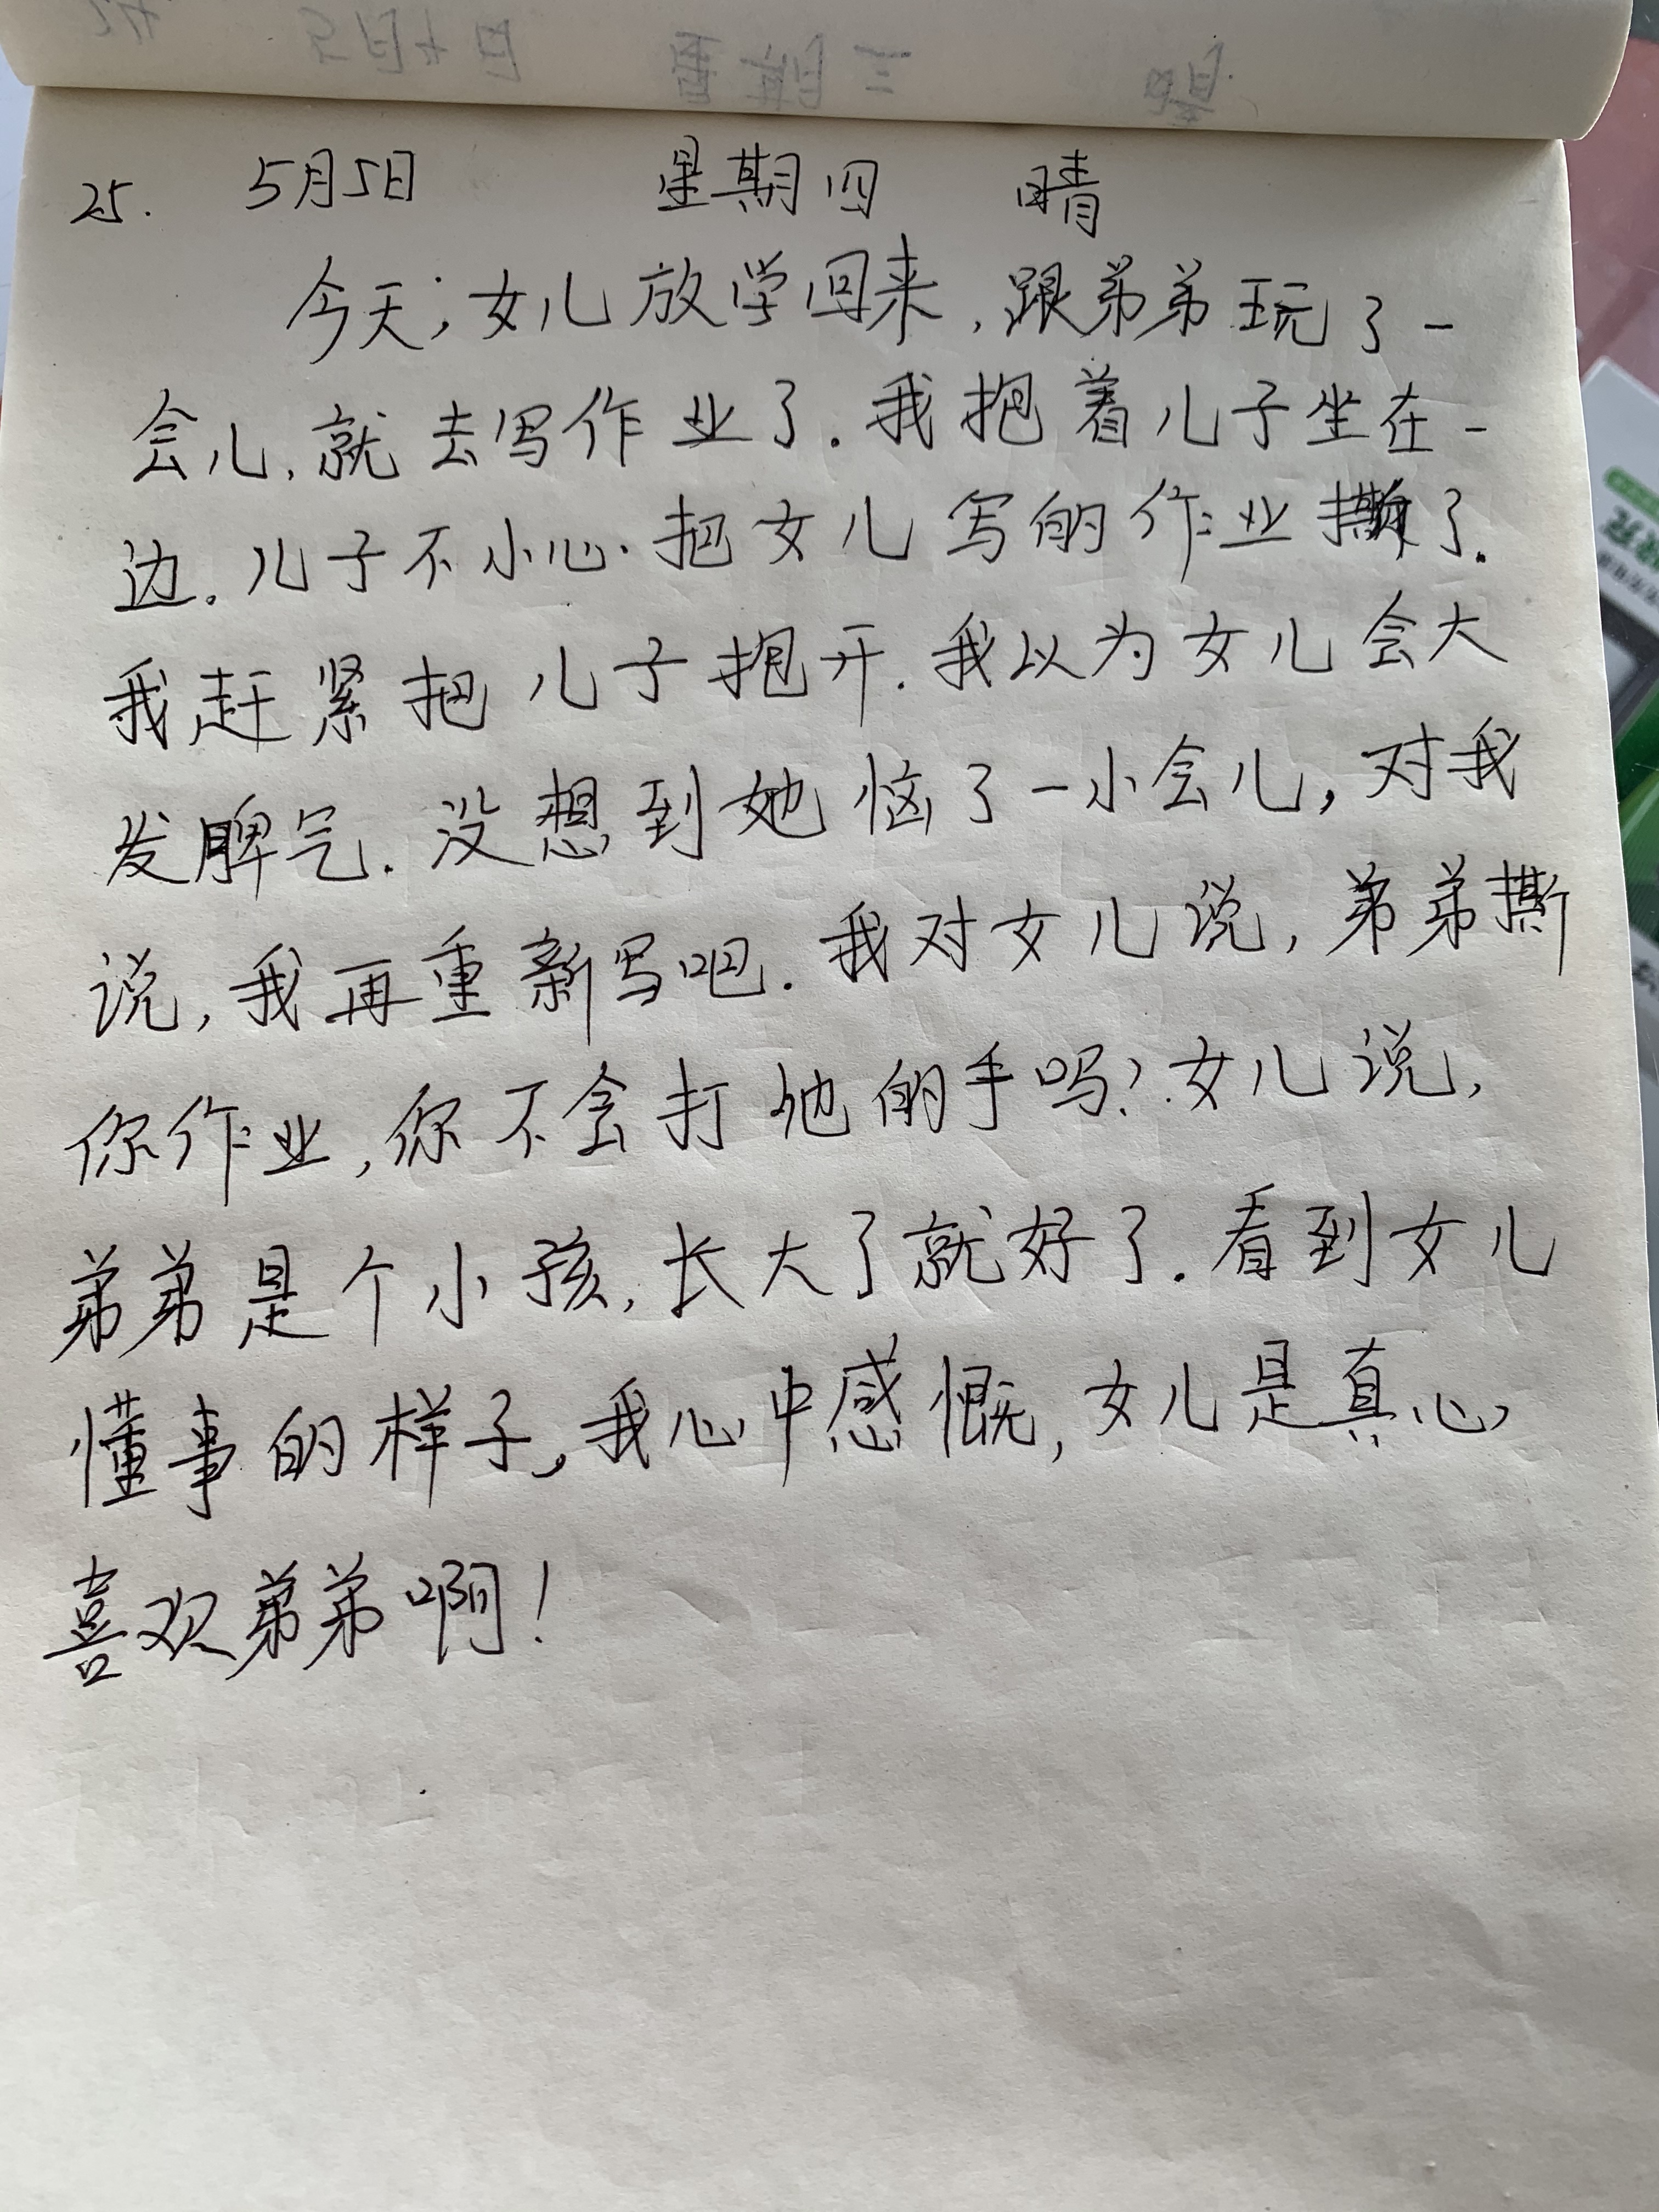 25. 5月5日 星期四 晴
今天,女儿放学回来,跟弟弟玩了一
会儿,就去写作业了.我抱着儿子坐在一
边.儿子不小心.把女儿写的作业撕了.
我赶紧把儿子抱开.我以为女儿会大
发脾气.没想到她恼了一小会儿,对我
说,我再重新写吧.我对女儿说,弟弟撕
你作业,你不会打他的手吗?女儿说,
弟弟是个小孩,长大了就好了.看到女儿
懂事的样子,我心中感慨,女儿是真心
喜欢弟弟啊!